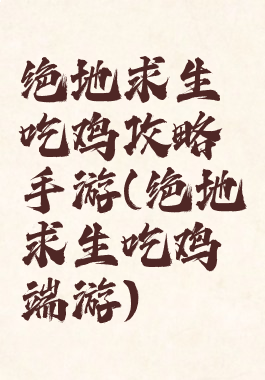 绝地求生
吃鸡攻略
手游(绝地
求生吃鸡
端游)